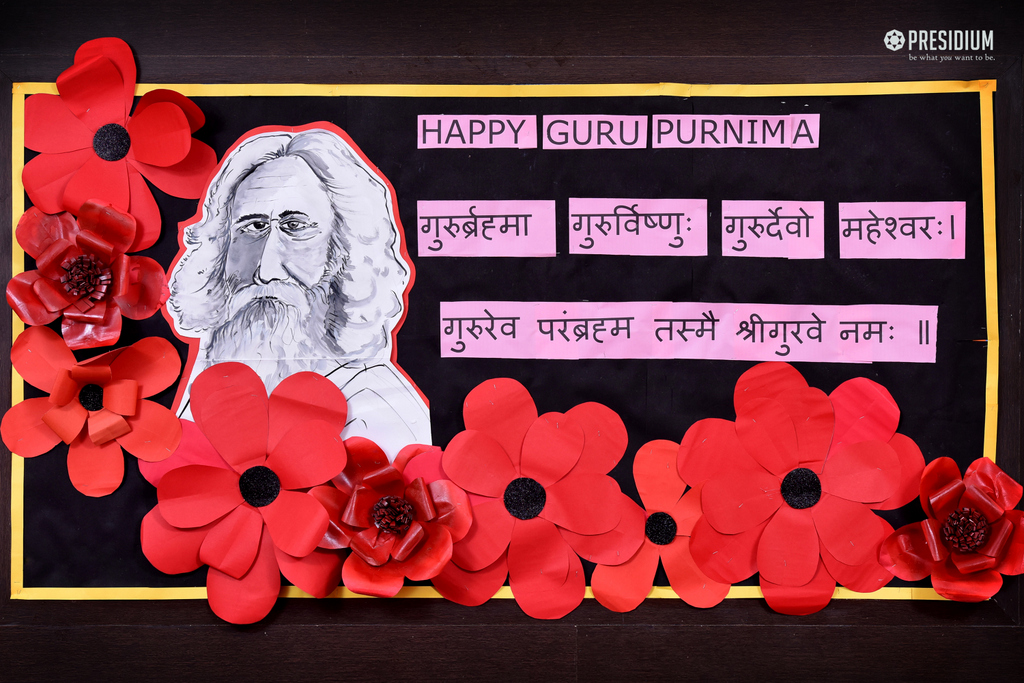 PRESIDIUM
be what you want to be.
HAPPY GURU PURNIMA
गुरुर्ब्रह्मा गुरुर्विष्णुः गुरुर्देवो महेश्वरः।
गुरुरेव परंब्रह्म तस्मै श्रीगुरवे नमः ॥